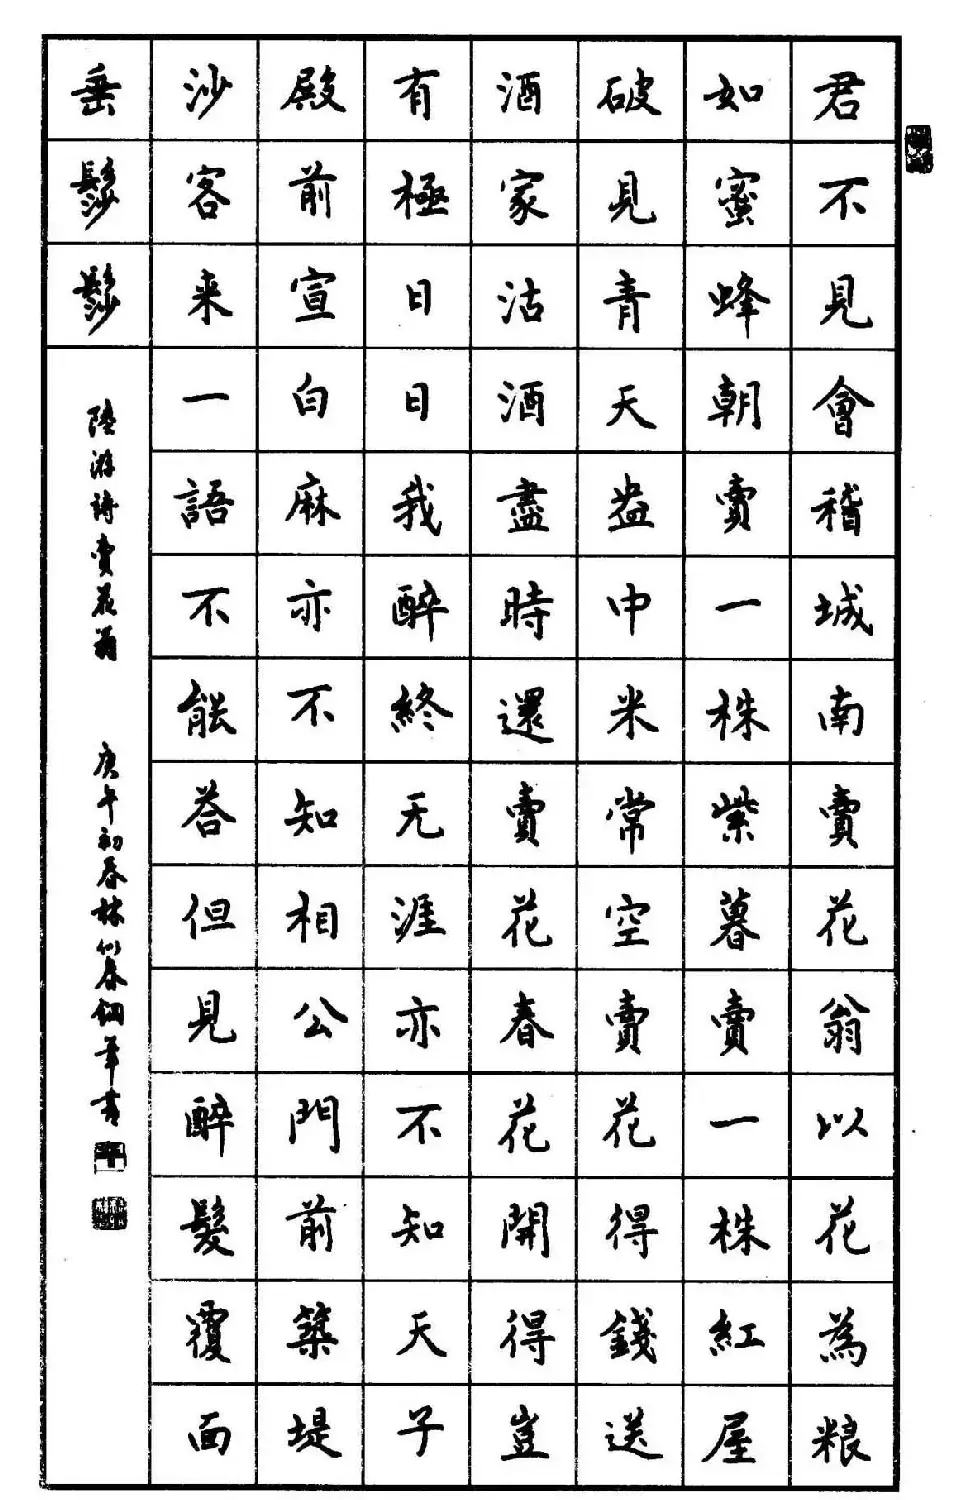 君不見會稽城南賣花翁以花為粮
如蜜蜂朝賣一株紫暮賣一株紅屋
破見青天盎中米常空賣花得錢送
酒家沽酒盡時還賣花春花開得豈
有極日日我醉終无涯亦不知天子
殿前宣白麻亦不知相公門前築堤
沙客来一語不能荅但見醉髮覆面
垂鬖鬖
陸游詩賣花翁 庚午初春林似春鋼筆書